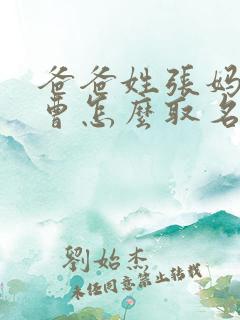 爸爸姓張妈
曹怎麼取名
劉始杰
未经同意禁止转载